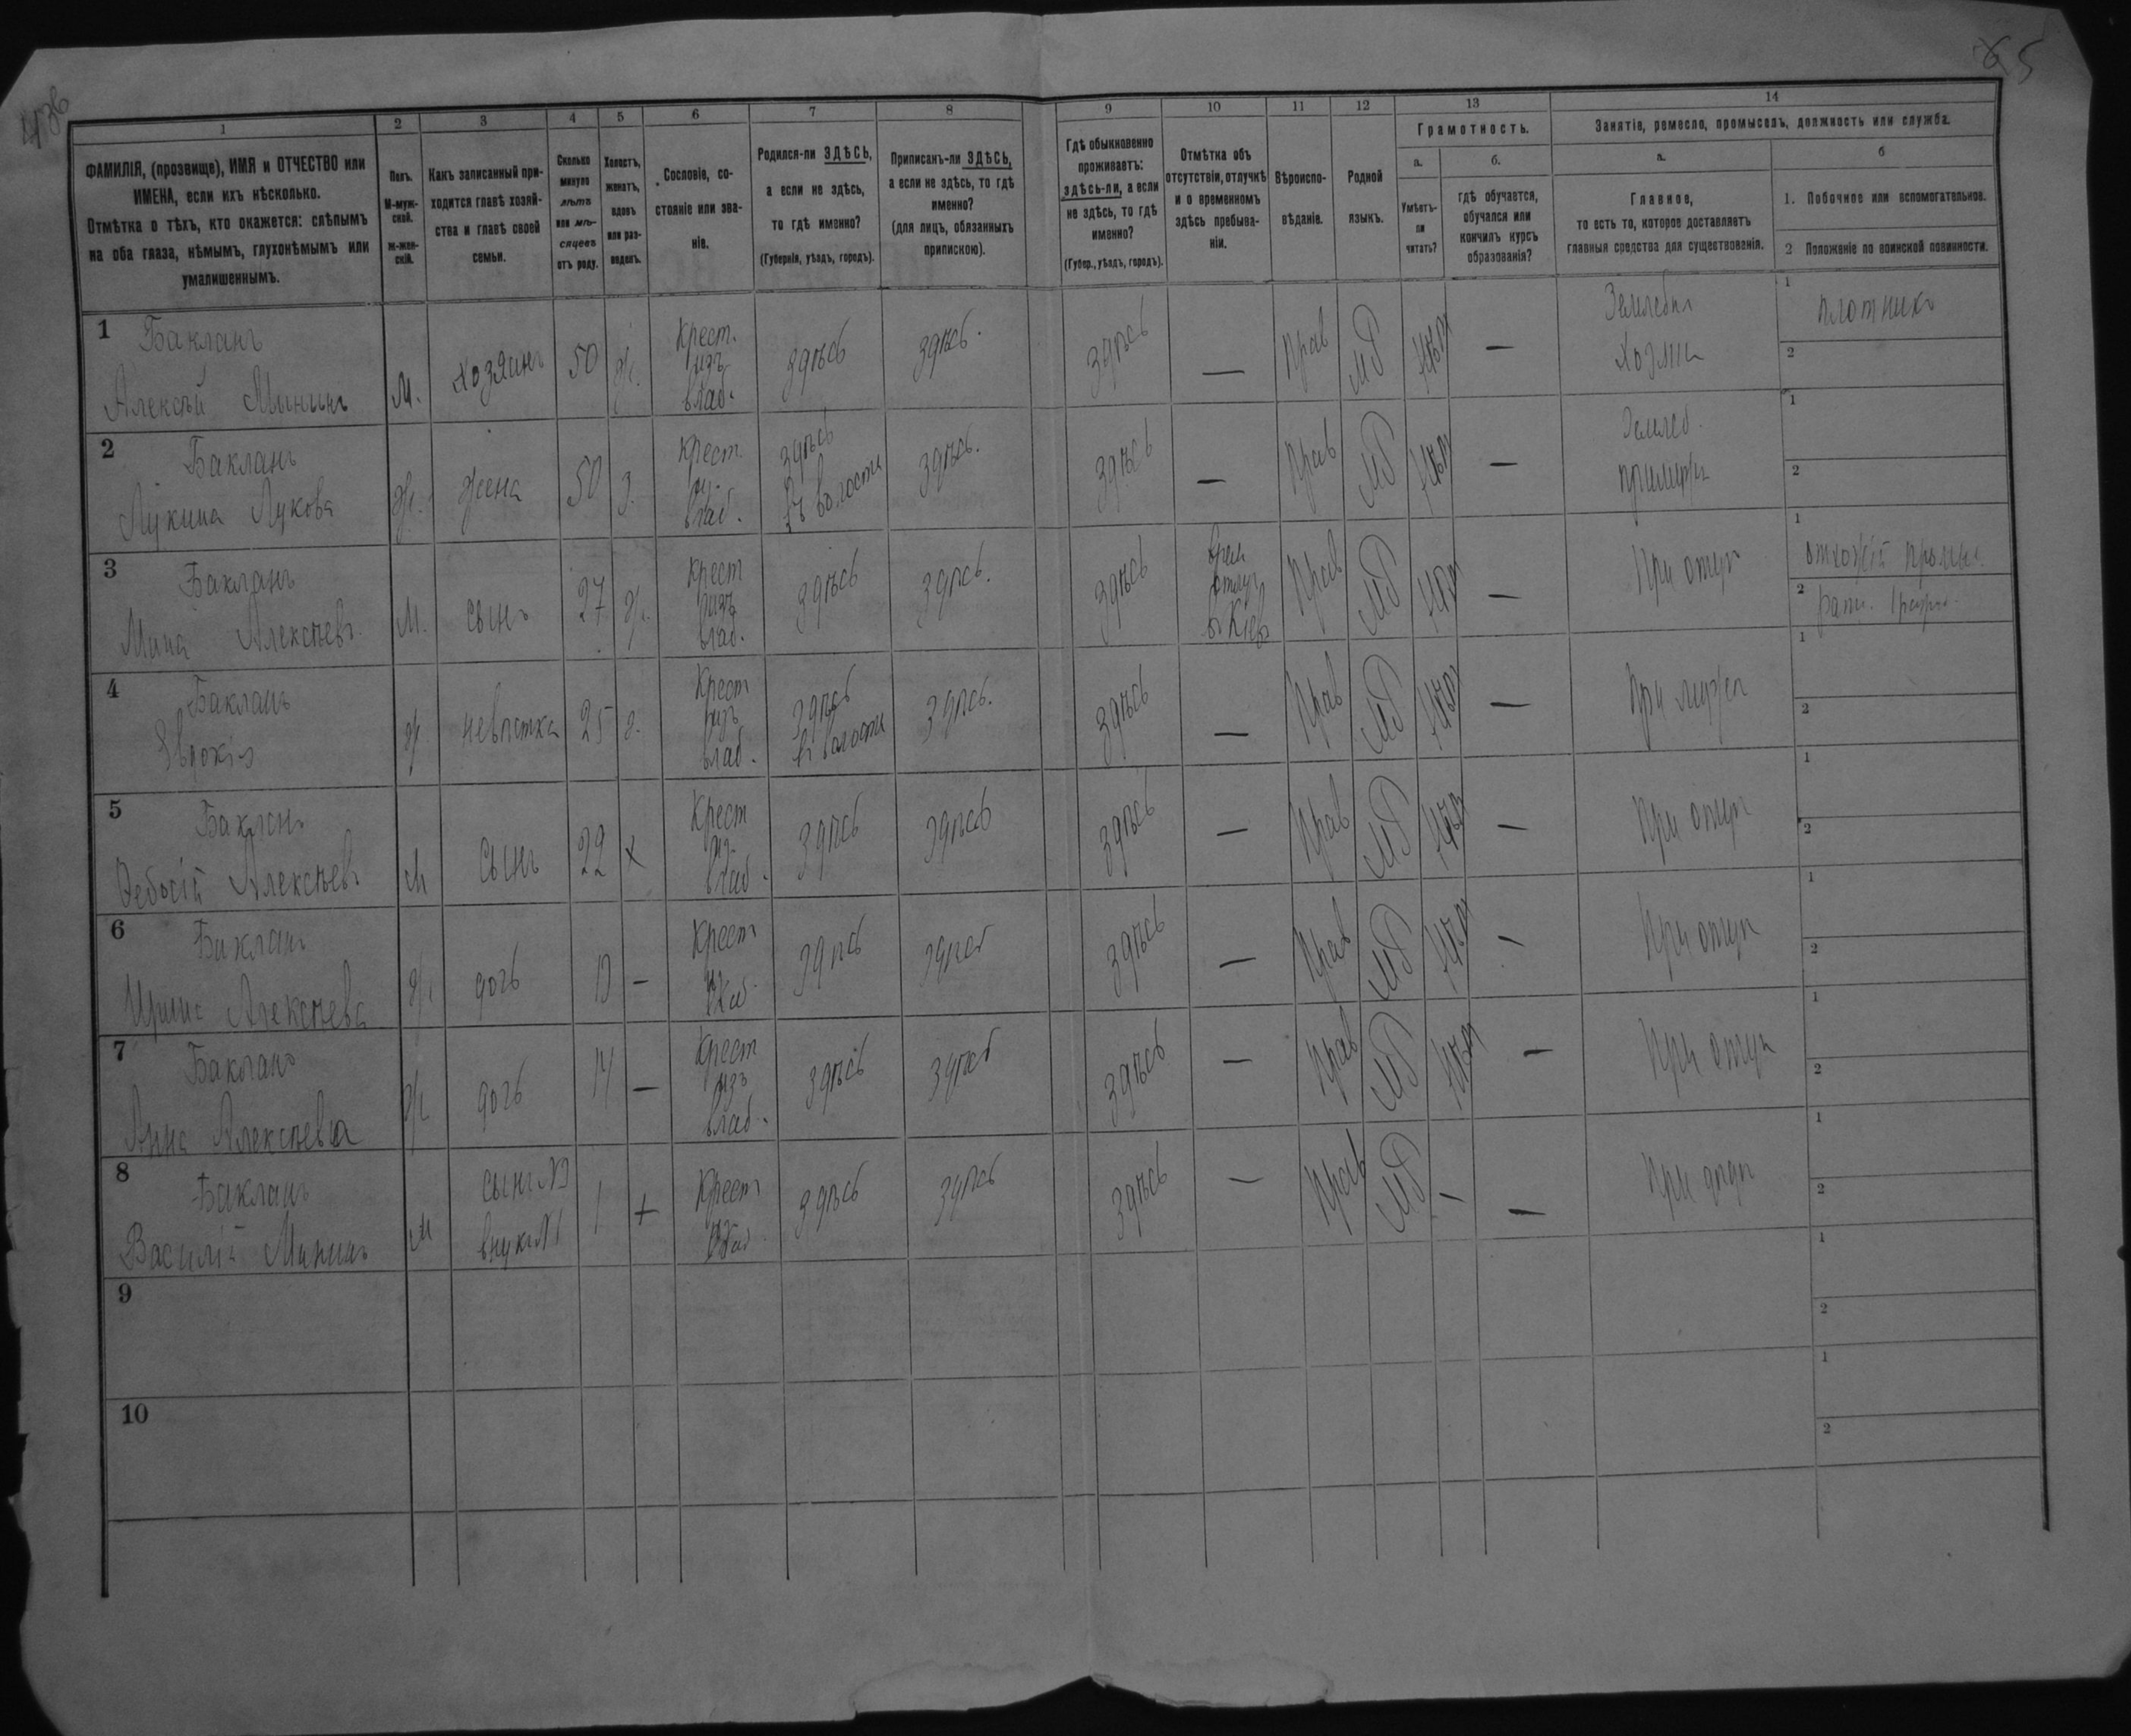 1 2 3 4 5 6 7 8 9 10 11 12 13 14
ФАМИЛІЯ, (прозвище), ИМЯ и ОТЧЕСТВО или
ИМЕНА, если ихъ нѣсколько.
Отмѣтка о тѣхъ, кто окажется: слѣпымъ
на оба глаза, нѣмымъ, глухонѣмымъ или
умалишеннымъ.
Полъ.
М-муж-
ской.
ж-жен-
скій.
Какъ записанный при-
ходится главѣ хозяй-
ства и главѣ своей
семьи.
Сколько
минуло
лѣтъ
или мѣ-
сяцевъ
отъ роду.
Холостъ,
женатъ,
вдовъ
или раз-
веденъ.
Сословіе, со-
стояніе или зва-
ніе.
Родился-ли ЗДѢСЬ,
а если не здѣсь,
то гдѣ именно?
(Губернія, уѣздъ, городъ).
Приписанъ-ли ЗДѢСЬ,
а если не здѣсь, то гдѣ
именно?
(для лицъ, обязанныхъ
припискою).
Гдѣ обыкновенно
проживаетъ:
здѣсь-ли, а если
не здѣсь, то гдѣ
именно?
(Губер., уѣздъ, городъ).
Отмѣтка объ
отсутствіи, отлучкѣ
и о временномъ
здѣсь пребыва-
ніи.
Вѣроиспо-
вѣданіе.
Родной
языкъ.
Грамотность.
а.
Умѣетъ-
ли
читать?
б.
гдѣ обучается,
обучался или
кончилъ курсъ
образованія?
Занятіе, ремесло, промыселъ, должность или служба.
а.
Главное,
то есть то, которое доставляетъ
главныя средства для существованія.
б
1. Побочное или вспомогательное.
2 Положеніе по воинской повинности.
1 Бакланъ
Алексѣй Мининъ М. хозяинъ 50 ж. Крест. изъ влад. здѣсь здѣсь. здѣсь — Прав МР нѣтъ —
1 плотникъ
2
2 Бакланъ
Лукова ж. жена 50 з. Крест влад. здѣсь въ волости здѣсь. здѣсь — Прав МР нѣтъ —
1
2
3 Бакланъ
Мина Алексѣев М. сынъ 27 ж. Крест изъ влад. здѣсь здѣсь. здѣсь въ Кіев Прав МР — При отцѣ
1 отхожій
2
4 Бакланъ
Евдокія ж невѣстка 25 з. Крест изъ влад. здѣсь въ волости здѣсь. здѣсь — Прав МР нѣтъ — При мужѣ
1
2
5 Бакланъ
Алексѣев М сынъ 22 х Крест влад. здѣсь здѣсь здѣсь — Прав МР нѣтъ — При отцѣ
1
2
6 Бакланъ
Алексѣева ж. дочь — Крест здѣсь здѣсь здѣсь — Прав МР нѣтъ — При отцѣ
1
2
7 Бакланъ
Анна Алексѣева ж дочь 14 — Крест изъ влад. здѣсь здѣсь здѣсь — Прав МР нѣтъ — При отцѣ
1
2
8 Бакланъ
Василій Мининъ М сынъ №3 внукъ №1 1 + Крест здѣсь здѣсь здѣсь — Прав МР — — При дѣдѣ
1
2
9
1
2
10
1
2